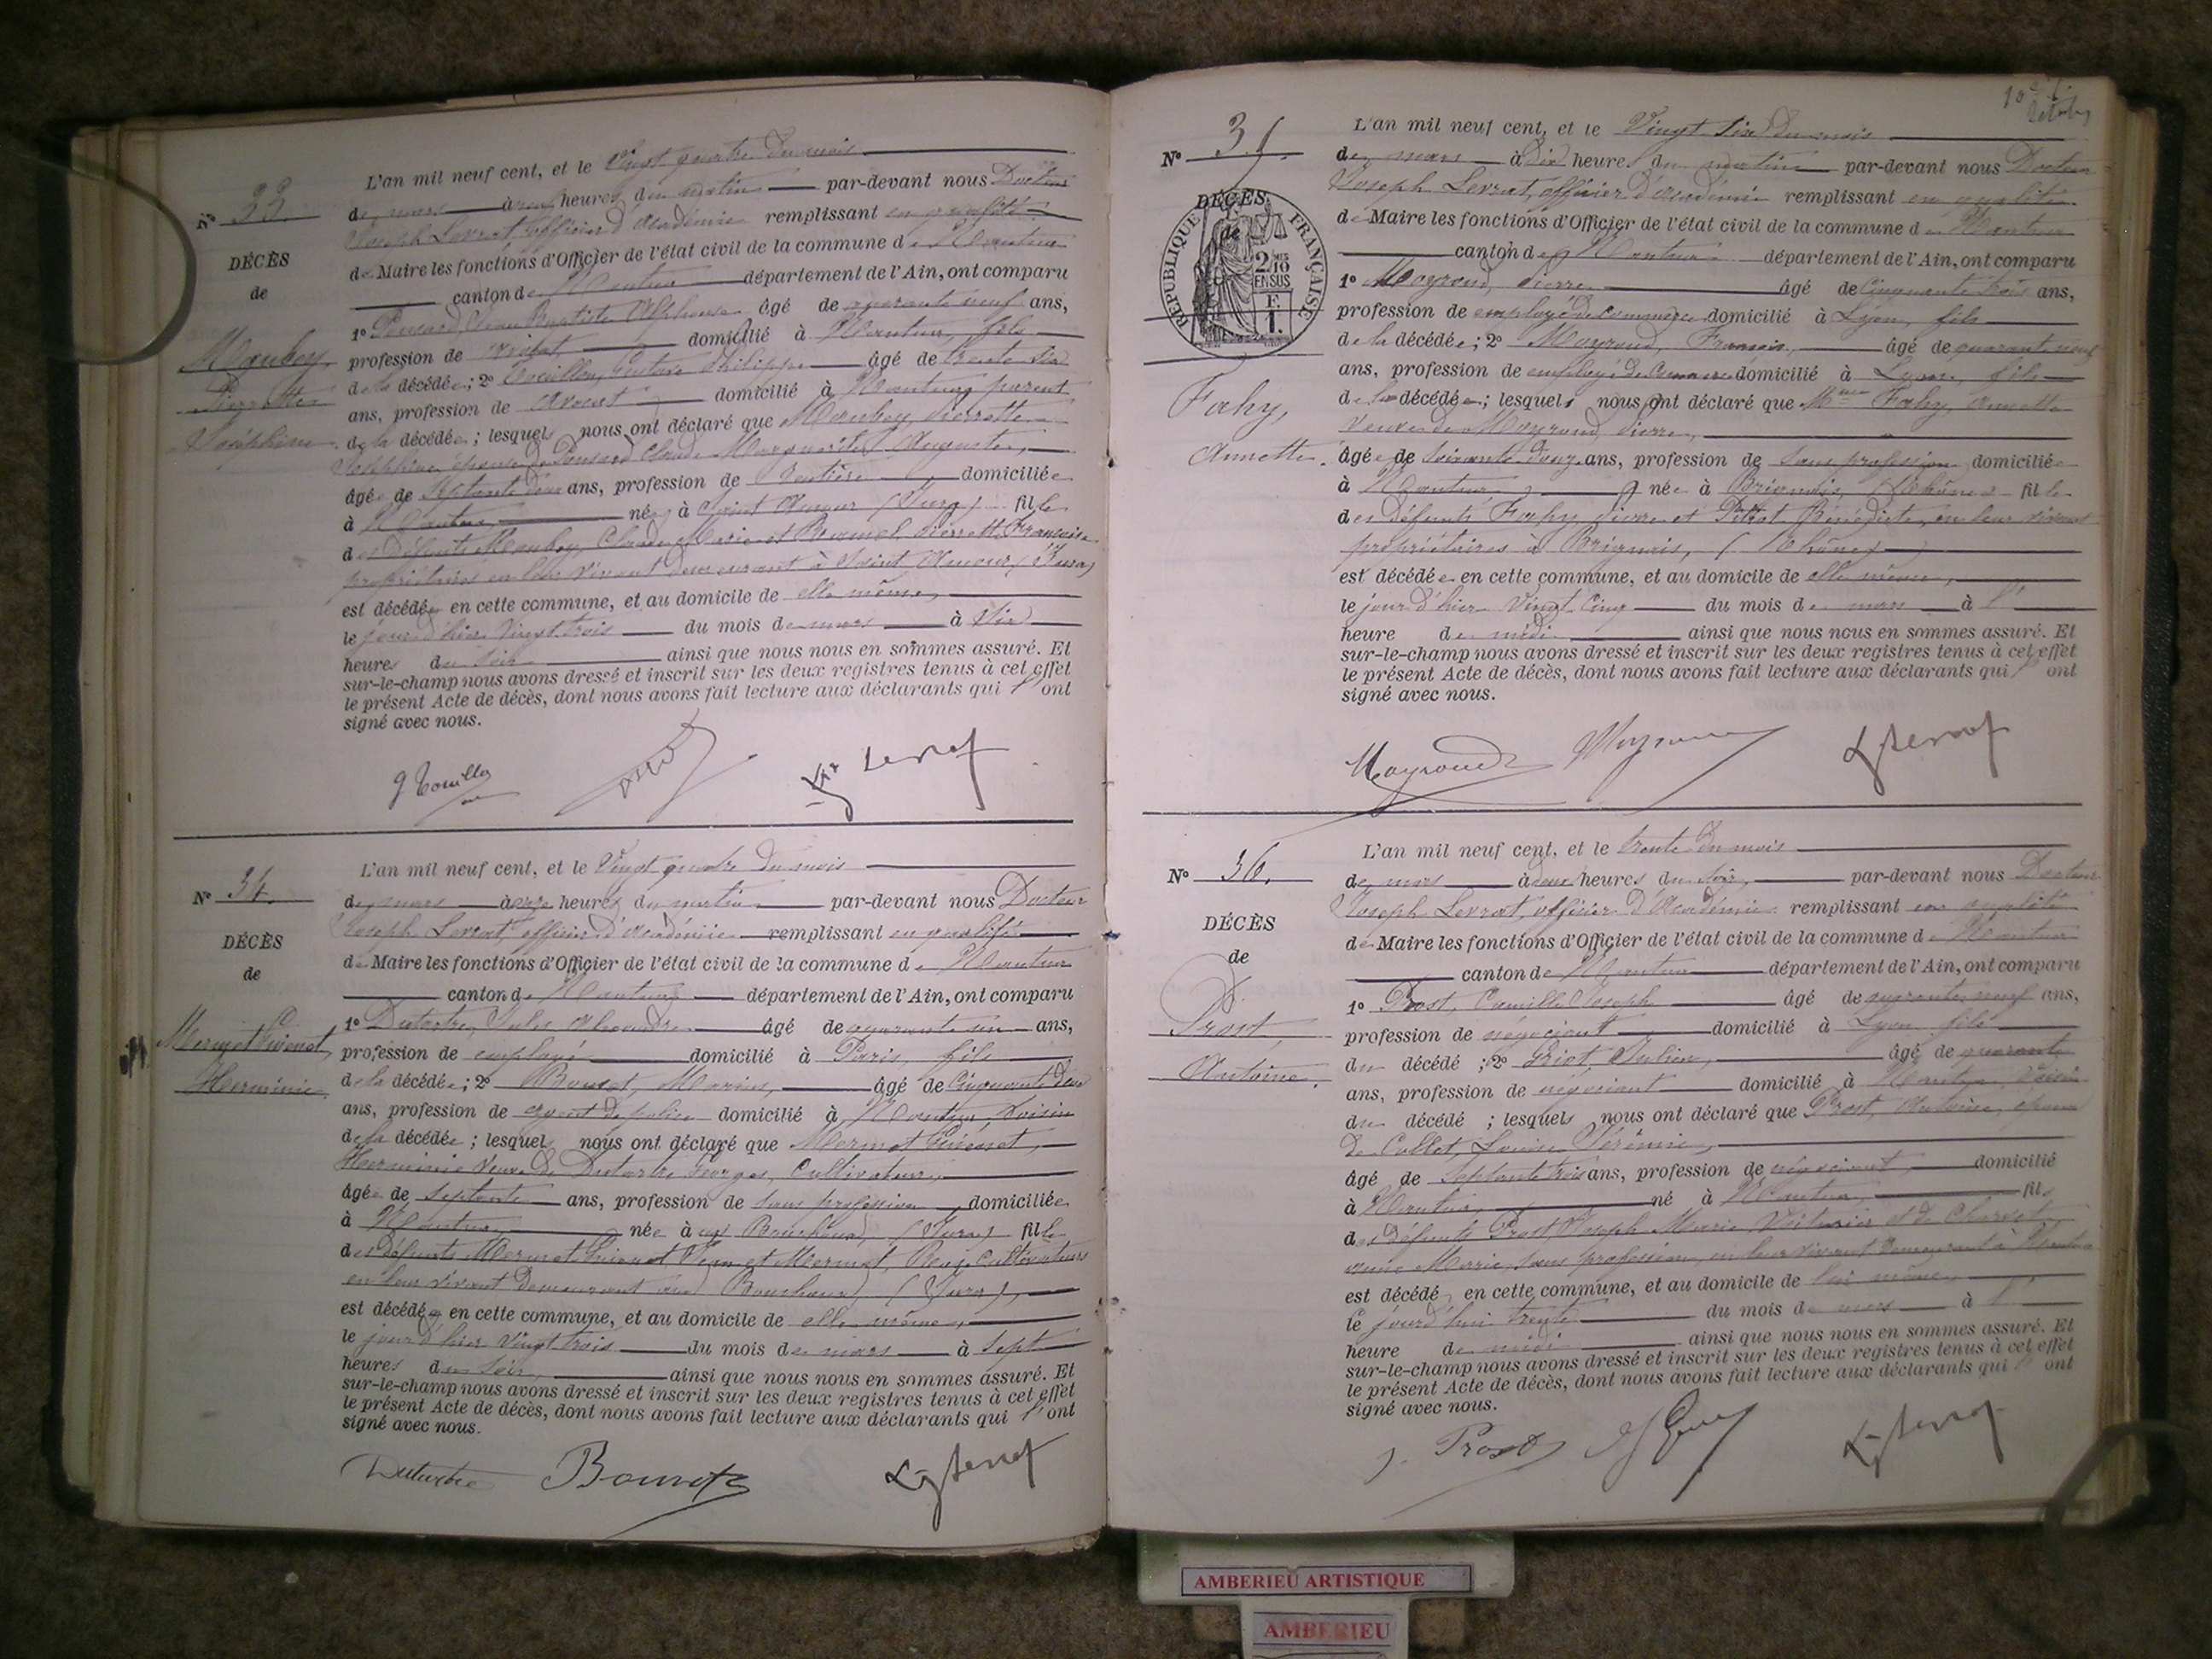 Nº 33.
DÉCÈS
de
Maubey
Pierrette
Joséphine
L'an mil neuf cent, et le Vingt quatre du mois
de mars à heures du matin par-devant nous Docteur
Joseph Levrat, officier d'Académie remplissant en qualité
de Maire les fonctions d'Officier de l'état civil de la commune de Nantua
canton de Nantua département de l'Ain, ont comparu
1º Ponsard Jean Baptiste Alphonse âgé de quarante neuf ans,
profession de domicilié à Nantua, fils
de la décédée; 2º Touillon, Gustave Philippe âgé de trente six
ans, profession de avocat domicilié à Nantua, parent
de la décédée; lesquels nous ont déclaré que Maubey, Pierrette
Joséphine épouse de Ponsard Claude Marguerite Auguste,
âgée de septante deux ans, profession de rentière domiciliée
à Nantua, née à Saint Amour (Jura) fille
des défunts Maubey, Claude Marie et Pierrette Françoise
propriétaires en leur vivant demeurant à Saint Amour (Jura)
est décédée en cette commune, et au domicile de elle même,
le jour d'hier vingt trois du mois de mars à six
heures du soir ainsi que nous nous en sommes assuré. Et
sur-le-champ nous avons dressé et inscrit sur les deux registres tenus à cet effet
le présent Acte de décès, dont nous avons fait lecture aux déclarants qui l'ont
signé avec nous.
G Touillon
Levrat
Nº 34.
DÉCÈS
de
Mermet Guienet,
Herminie
L'an mil neuf cent, et le Vingt quatre du mois
de mars à onze heures du matin par-devant nous Docteur
Joseph Levrat, officier d'Académie remplissant en qualité
de Maire les fonctions d'Officier de l'état civil de la commune de Nantua
canton de Nantua département de l'Ain, ont comparu
1º Dutartre, Jules Alexandre âgé de quarante un ans,
profession de employé domicilié à Paris, fils
de la décédée; 2º Bourot, Marius, âgé de cinquante deux
ans, profession de agent de police domicilié à Nantua, voisin
de la décédée; lesquels nous ont déclaré que Mermet Guienet,
Herminie veuve de Dutartre Georges, cultivateur,
âgée de septante ans, profession de sans profession domiciliée
à Nantua, née à aux Bouchoux, (Jura) fille
des défunts Mermet Guienet Jean et Mermet, cultivateurs
en leur vivant demeurant aux Bouchoux (Jura),
est décédée en cette commune, et au domicile de elle même,
le jour d'hier vingt trois du mois de mars à sept
heures du soir, ainsi que nous nous en sommes assuré. Et
sur-le-champ nous avons dressé et inscrit sur les deux registres tenus à cet effet
le présent Acte de décès, dont nous avons fait lecture aux déclarants qui l'ont
signé avec nous.
Dutartre Levrat
Nº 35.
DÉCÈS
de
RÉPUBLIQUE FRANÇAISE
2/10 EN SUS
F. 1.
Fahy,
Annette.
L'an mil neuf cent, et le Vingt six du mois
de mars à dix heures du matin par-devant nous Docteur
Joseph Levrat, officier d'Académie remplissant en qualité
de Maire les fonctions d'Officier de l'état civil de la commune de Nantua
canton de Nantua département de l'Ain, ont comparu
1º Mayroud, Pierre âgé de cinquante trois ans,
profession de employé de commerce domicilié à Lyon, fils
de la décédée; 2º Mayroud, François, âgé de quarante neuf
ans, profession de employé de commerce domicilié à Lyon, fils
de la décédée; lesquels nous ont déclaré que Mme Fahy, Annette
veuve de Mayroud, Pierre,
âgée de soixante douze ans, profession de sans profession domiciliée
à Nantua, née à Brignais, (Rhône) fille
des défunts Fahy, Pierre et Bénédicte, en leur vivant
propriétaires à Brignais, (Rhône)
est décédée en cette commune, et au domicile de elle même,
le jour d'hier vingt cinq du mois de mars à l'
heure de midi ainsi que nous nous en sommes assuré. Et
sur-le-champ nous avons dressé et inscrit sur les deux registres tenus à cet effet
le présent Acte de décès, dont nous avons fait lecture aux déclarants qui l'ont
signé avec nous.
Mayroud Mayroud Levrat
Nº 36.
DÉCÈS
de
Prost,
Antoine.
L'an mil neuf cent, et le trente du mois
de mars à heures du soir, par-devant nous Docteur
Joseph Levrat, officier d'Académie remplissant en qualité
de Maire les fonctions d'Officier de l'état civil de la commune de Nantua
canton de Nantua département de l'Ain, ont comparu
1º Prost, Camille Joseph âgé de quarante neuf ans,
profession de négociant domicilié à Lyon, fils
du décédé; 2º Julien, âgé de quarante
ans, profession de négociant domicilié à Nantua, voisin
du décédé; lesquels nous ont déclaré que Prost, Antoine, époux
de Collet, Louise
âgé de septante trois ans, profession de négociant, domicilié
à Nantua, né à Nantua, fils
des défunts Prost Joseph Marie Voiturier et de
Anne Marie, sans profession, en leur vivant demeurant à Nantua
est décédé en cette commune, et au domicile de lui même
le jourd'hui trente du mois de mars à l'
heure de midi ainsi que nous nous en sommes assuré. Et
sur-le-champ nous avons dressé et inscrit sur les deux registres tenus à cet effet
le présent Acte de décès, dont nous avons fait lecture aux déclarants qui l'ont
signé avec nous.
J. Prost Levrat
AMBERIEU ARTISTIQUE
AMBERIEU